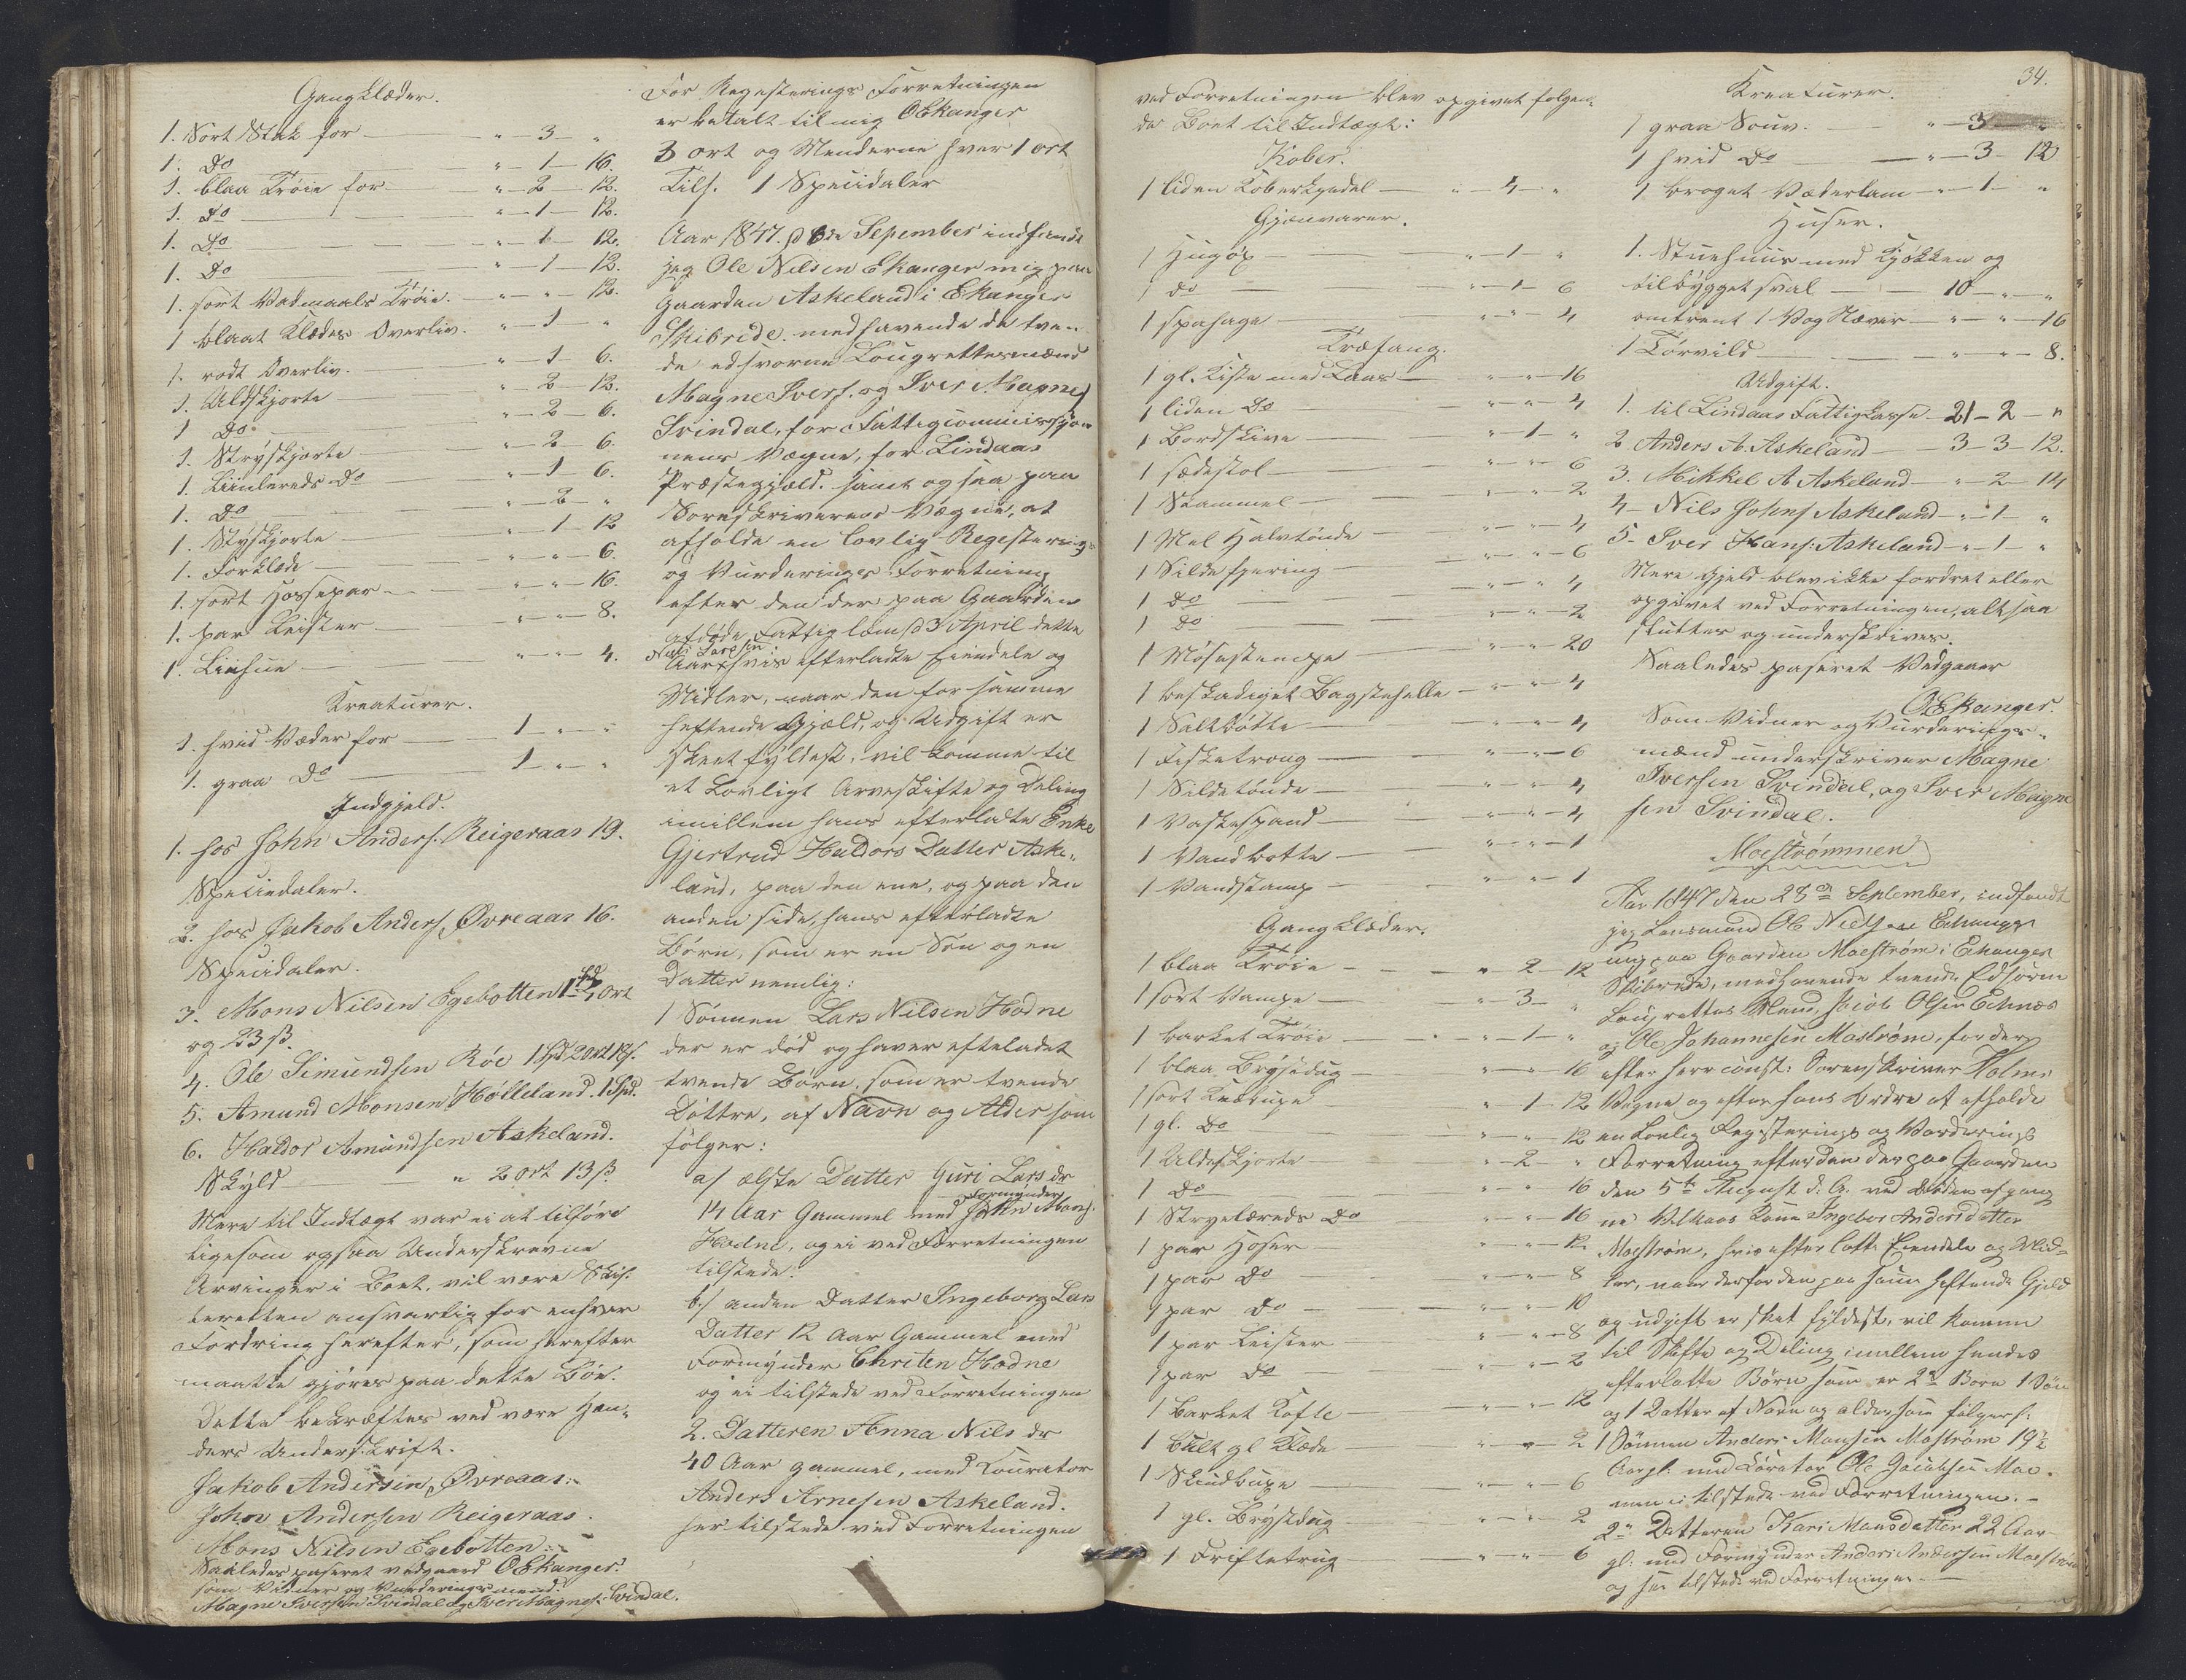 Gangklæder.
1. Sort Stak for — " — 3 — "
1. Do — " — 1 — 16.
1. blaa Trøie for — " — 2 — 12.
1. Do — " — 1 — 12.
1. Do — " — 1 — 12.
1. Do — " — 1 — 12.
1. sort Vadmaals Trøie. — " — " — 12.
1 blaat Klædes Overliv. — " — 1 — "
1. rødt Overliv. — " — 1 — 6.
1. Uldskjorte — " — 2 — 12.
1 Do. — " — 2 — 6.
1. Stryskjorte — " — 2 — 6.
1. Linlereds Do — " — 1 — 6.
1. Do — " — 2 — "
1. Stryskjorte — " — 1 — 12
1. Forklæde — " — " — 6.
1. sort Hossepar — " — " — 16.
1. par Leister — " — " — 8.
1. Linhue — " — " — 4.
Kreaturer.
1. hvid Væder for — 1 — " — "
1. graa Do — 1 — " — "
Indgjeld.
1. hos John Anders. Reigeraas 19.
Speciedaler.
2. hos Jakob Anders. Øvreaas 16.
Speciedaler.
3. Mons Nilsen Egebotten 1 Spd 1 Ort
og 23 ß.
4. Ole Simundsen Röe 1 Spd 2 Ort 12 ß.
5. Amund Monsen Hølleland. 1 Spd.
6. Haldor Amundsen Askeland.
Skyld — " 2 Ort 13 ß.
Mere til Indtægt var ei at tilføre
ligesom ogsaa Underskrevne
Arvinger i Boet, vil være Skif-
teretten ansvarlig for enhver
Fordring herefter, som herefter
maatte gjøres paa dette Boe.
Dette bekræftes ved vore Hæn-
ders Underskrift.
Jakob Andersen Øvreaas.
Johan Andersen Reigeraas.
Mons Nilsen Egebotten.
Saaledes passeret vedgaard OEkanger.
som Vidner og Vurderingsmænd.
Magne Iversen Svindal og Iver Magnes. Svindal.
For Registerings Forretningen
er betalt til mig OEkanger
3 ort og Mænderne hver 1 ort
Tils. 1 Speciedaler
Aar 1847. d 6de Sepember indfandt
jeg Ole Nilsen Ekanger mig paa
Gaarden Askeland i Ekanger
Skibrede, medhavende de tven-
de edsvorne Lougrettesmænd
Magne Ivers. og Iver Magnes
Svindal, for Fattigcommissjon
nens Vægne, for Lindaas
Præstegjæld. samt ogsaa paa
Sorenskriverens Vægne, at
afholde en lovlig Registerings
og Vurderings Forretning
efter den der paa Gaarden
afdøde Fattiglem d 3 April dette
Nils Larsen:
Aar, hvis efterladte Eiendele og
Midler, naar den for samme
heftende Gjæld, og Udgift er
skeet fyldest, vil komme til
et Lovligt Arveskifte og Deling
imillem hans efterladte Enke
Gjertrud Haldors Datter Aske-
land, paa den ene, og paa den
anden side, hans efterladte
Børn, som er en Søn og en
Datter nemlig:
1 Sønnen Lars Nilsen Hodne
der er død og haver efteladet
tvende Børn, som er tvende
Døttre, af Navn og Alder som
følger:
a/ ælste Datter Guri Lars dr
Formynder
14 Aar Gammel med John Mons.
Hodne, og ei ved Forretningen
tilstede.
b/ anden Datter Ingeborg Lars
Datter 12 Aar Gammel med
Formynder Chriten Hodne
og ei tilstede ved Forretningen
2. Datteren Anna Nils dr
40 Aar gammel, med Kurator
Anders Arnesen Askeland.
her tilstede ved Forretningen
ved Forretningen blev opgivet følgen-
de Boet til Indtægt:
Kober.
1 liden Koberkjedel — " — 4 — "
Gjernvarer.
1 Hugøx — " — 1 — "
1 do — " — 1 — 6
1 spahage — " — " — 4
Træfang.
1 gl. Kiste med Laas — " — " — 16
1 liden Do — " — " — 4
1 Bordskive — " — 1 — "
1 sædestol — " — " — 6
1 Skammel — " — " — 2
1 Mel Halvtønde — " — " — 4
1 Sildespering — " — " — 6
1 Do — " — " — 4
1 Do — " — " — 2
1 Møsestempe — " — " — 20
1 beskadiget Bagstehelle — " — " — 4
1 Saltbøtte — " — " — 4
1 Fisketroug — " — " — 6
1 Sildetønde — " — " — 4
1 Vaskespand — " — " — 4
1 Vandbotte — " — " — 1
1 Vandstamp — " — " — 1
Gangklæder.
1 blaa Trøie — " — 2 — 12
1 sort Vampe — " — 3 — "
1 barket Trøie — " — 1 — "
1 blaa Brysdug — " — " — 16
1 sort Knebuxe — " — 1 — 12
1 gl. Do — " — " — 12
1 Uldskjorte — " — 2 — "
1 Do — " — " — 16
1 Strylæreds Do — " — " — 16
1 par Hoser — " — " — 12
1 par Do — " — " — 8
1 par Do — " — " — 10
1 par Leister — " — " — 8
1 par Do — " — " — 2
1 barket Kofte — " — " — 12
1 bult gl Klæde — " — " — 2
1 Skindbuxe — " — " — 6
1 gl. Brystdug — " — " — 2
1 Friftetrug — " — " — 6
34.
Kreaturer.
1 graa Souv. — " — 3 — "
1 hvid Do — " — 3 — 12
1 broget Væderlam — " — 1 — "
Huser.
1. Stuehuus med Kjøkken og
tilbygget sval — 10 — " — "
omtrent 1 Vog Næver — " — " — 16
1 Torvild — " — " — 8.
Udgift.
1. til Lindaas Fattigkasse — 21 — 2 — "
2 Anders A. Askeland — 3 — 3 — 12.
3. Mikkel A Askeland — " — 2 — 14
4 — Nils Johns Askeland — " — 1 — "
5. Iver Hans. Askeland — " — 1 — "
Mere Gjeld blev ikke fordret eller
opgivet ved Forretningen, altsaa
sluttes og underskrives.
Saaledes passeret Vedgaaer
OEkanger.
Som Vidner og Vurderings-
mænd underskriver Magne
Iversen Svindal, og Iver Magne
sen Svindal.
Moestrømmen
Aar 1847 den 23de September, indfandt
jeg Lensmand Ole Nielsen Echanger
mig paa Gaarden Moestrøm i Echanger
Skibrede, medhavende tvende Edsorne
Laugrettes Mænd, Jacob Olsen Echnæs
og Ole Johannesen Mostrøm, for der
efter herr const: Sorenskriver Holms
Vegne og efter hans Ordre at afholde
en Lovlig Registerings og Vorderings
Forretning efter den der paa Gaarden
den 5te August d. A. ved Døden afgang
ne Kone Ingebor Andersdatter
Moestrøm, hvis efterlatte Eiendele og Mid-
ler, naar derfor den paa samme heftende Gjeld
og udgift er sket fyldest, vil komme
til Skifte og Deling imellem hendes
efterlatte Børn som er 2de Børn 1 Søn
og 1 Datter af Navn og alder som følger:
1 Sønnen Anders Monsen Mostrøm 19½
Aar gl. med Curator Ole Jacobsen Moe.
men ei tilstede ved Forretningen. —
2. Datteren Kari Monsdatter 22 Aar
gl. med Formynder Anders Andersen Moestrøm
og her tilstede ved Forretningen. —